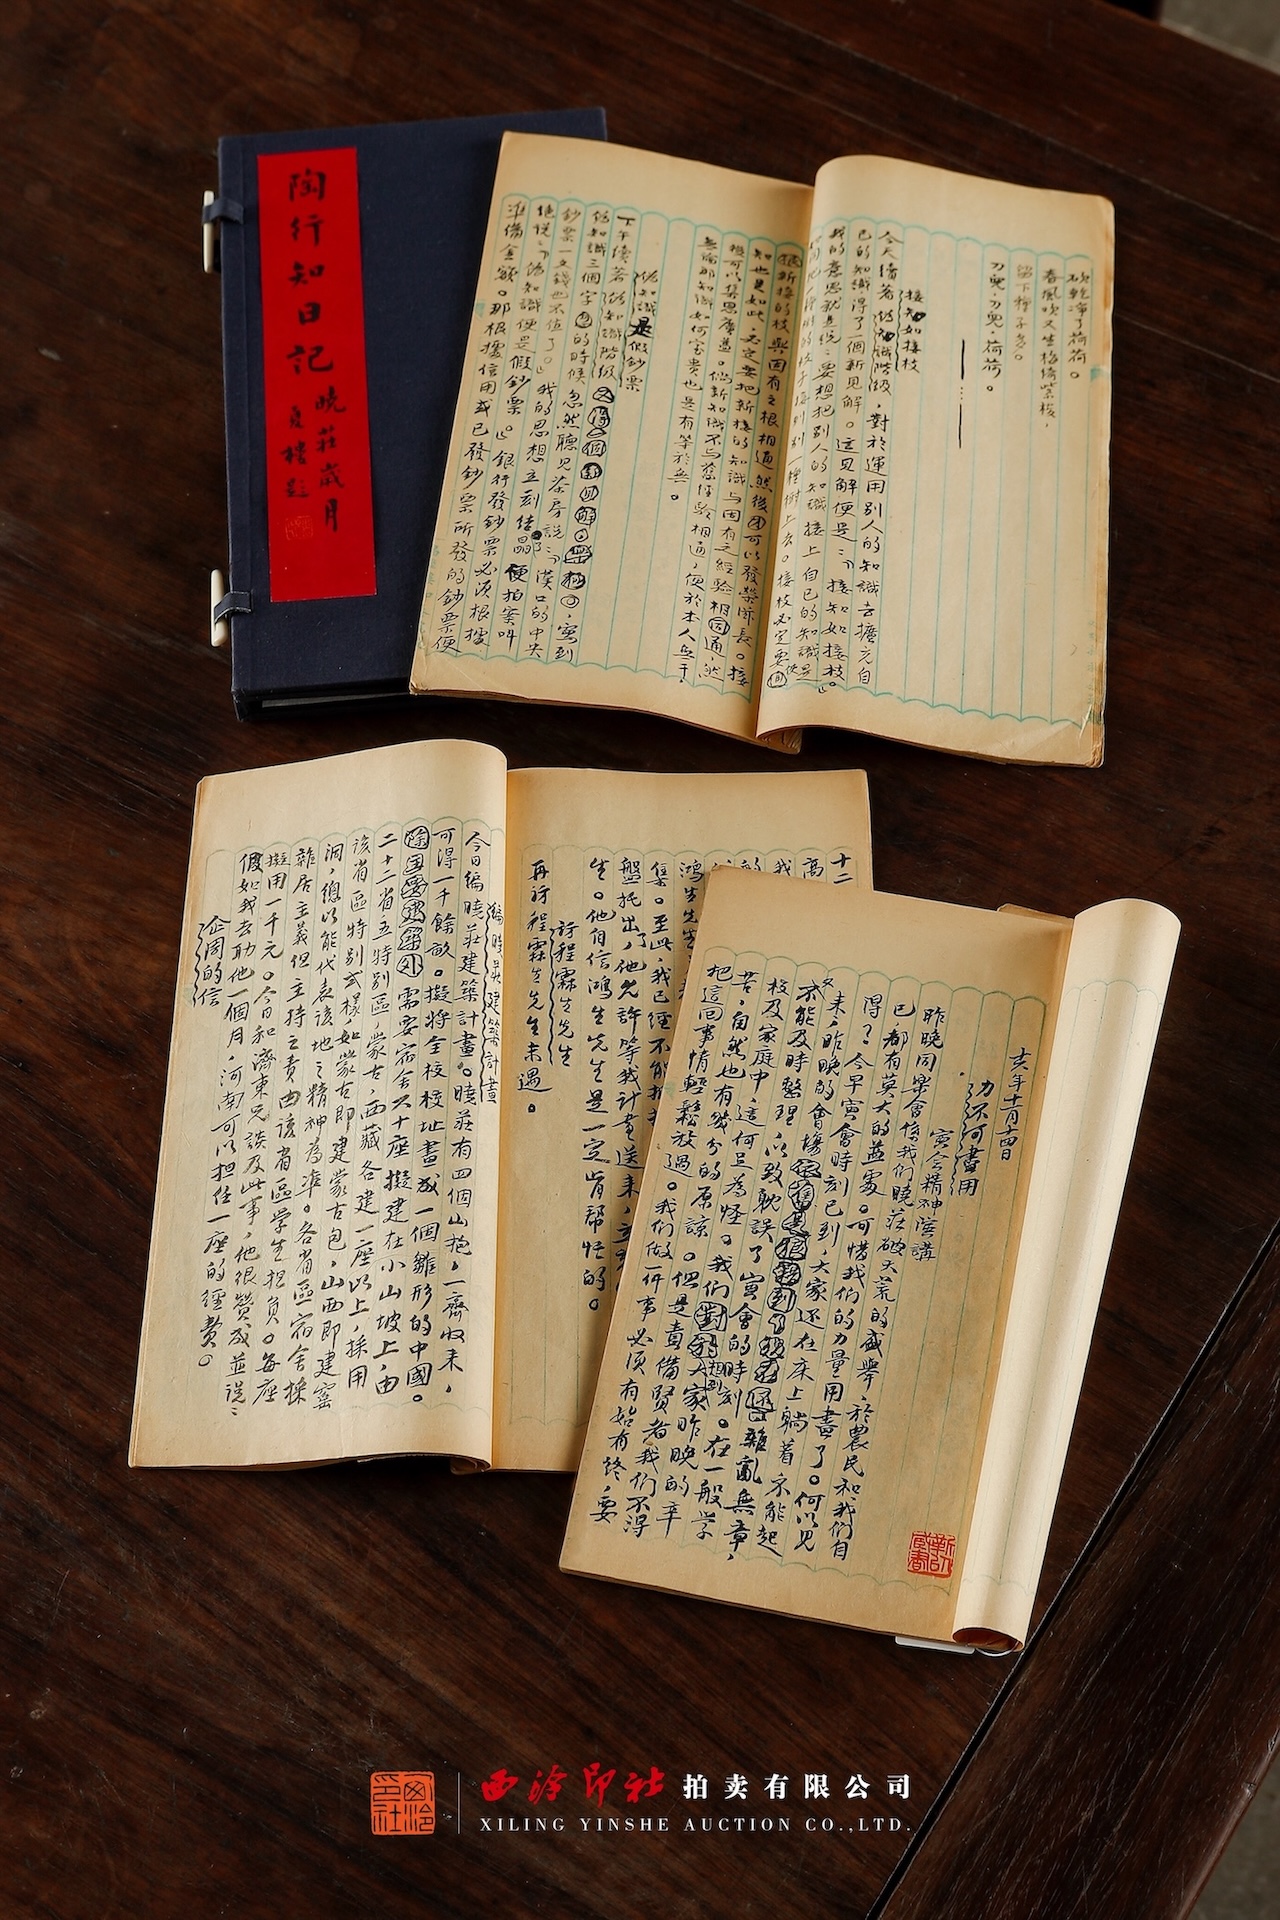 陶行知日記
曉莊歲月
砍乾淨了荷荷。
春風吹又生
留下種子多。
刀兒刀兒荷荷。
接知如接枝
今天續著偽知識階級，對於運用別人的知識去擴充自
己的知識得了一個新見解。這見解便是：「接知如接枝。」
我的意思就是說：要想把別人的知識接上自己的知識是
接枝必定要
新接的枝與固有之根相通然後可以發榮滋長。接
知也是如此，必定要把新接的知識与固有之經驗相通，然
後可以集思廣益。倘新知識不与舊經驗相通，便於本人無干，
無論那知識如何寶貴也是有等於無。
偽知識是假鈔票
下午續著偽知識階級
偽知識三個字的時候忽然聽見茶房說：「漢口的中央
鈔票一文錢也不值了。」我的思想立刻結晶便拍案叫
絕說：「偽知識便是假鈔票。」銀行發鈔票必須根據
準備金額。那根據信用或已發鈔票所發的鈔票便
再訪程霖生先生未遇。
訪程霖生先生
生。他自信鴻生先生是一定肯幫忙的。
盤托出了，他允許等我計畫送來，
集。至此，我已經不能
鴻生先生
編曉莊建築計畫
今日編曉莊建築計畫。曉莊有四個山抱，一齊收來，
可得一千餘畝。擬將全校校址畫成一個雛形的中國。
除國委建築外需要宿舍六十座擬建在小山坡上，由
二十二省五特別區，蒙古西藏各建一座以上，採用
該省區特別式樣，如蒙古即建蒙古包，山西即建窰
洞，總以能代表該地之精神為準。各省區宿舍採
雜居主義但主持之責由該省區學生担負。每座
擬用一千元。今日和濟東兄談及此事，他很贊成並說：
假如我去助他一個月，河南可以担任一座的經費。
企周的信
十一月十四日
力不可盡用
寅會精神演講
昨晚同樂會係我們曉莊破天荒的盛舉，於農民和我們自
已，都有莫大的益處。可惜我們的力量用盡了。何以見
得？今早寅會時刻已到，大家还在床上躺着不能起
來，昨晚的會場 雜亂無章，
又不能及時整理以致耽誤了寅會的時刻。在一般学
校及家庭中這何足為怪。我們想到大家昨晚的辛
苦，自然也有幾分的原諒。但是責備賢者我們不得
把這回事情輕鬆放過。我們做一件事必須有始有終，要
西泠印社
西泠印社拍卖有限公司
XILING YINSHE AUCTION CO.,LTD.